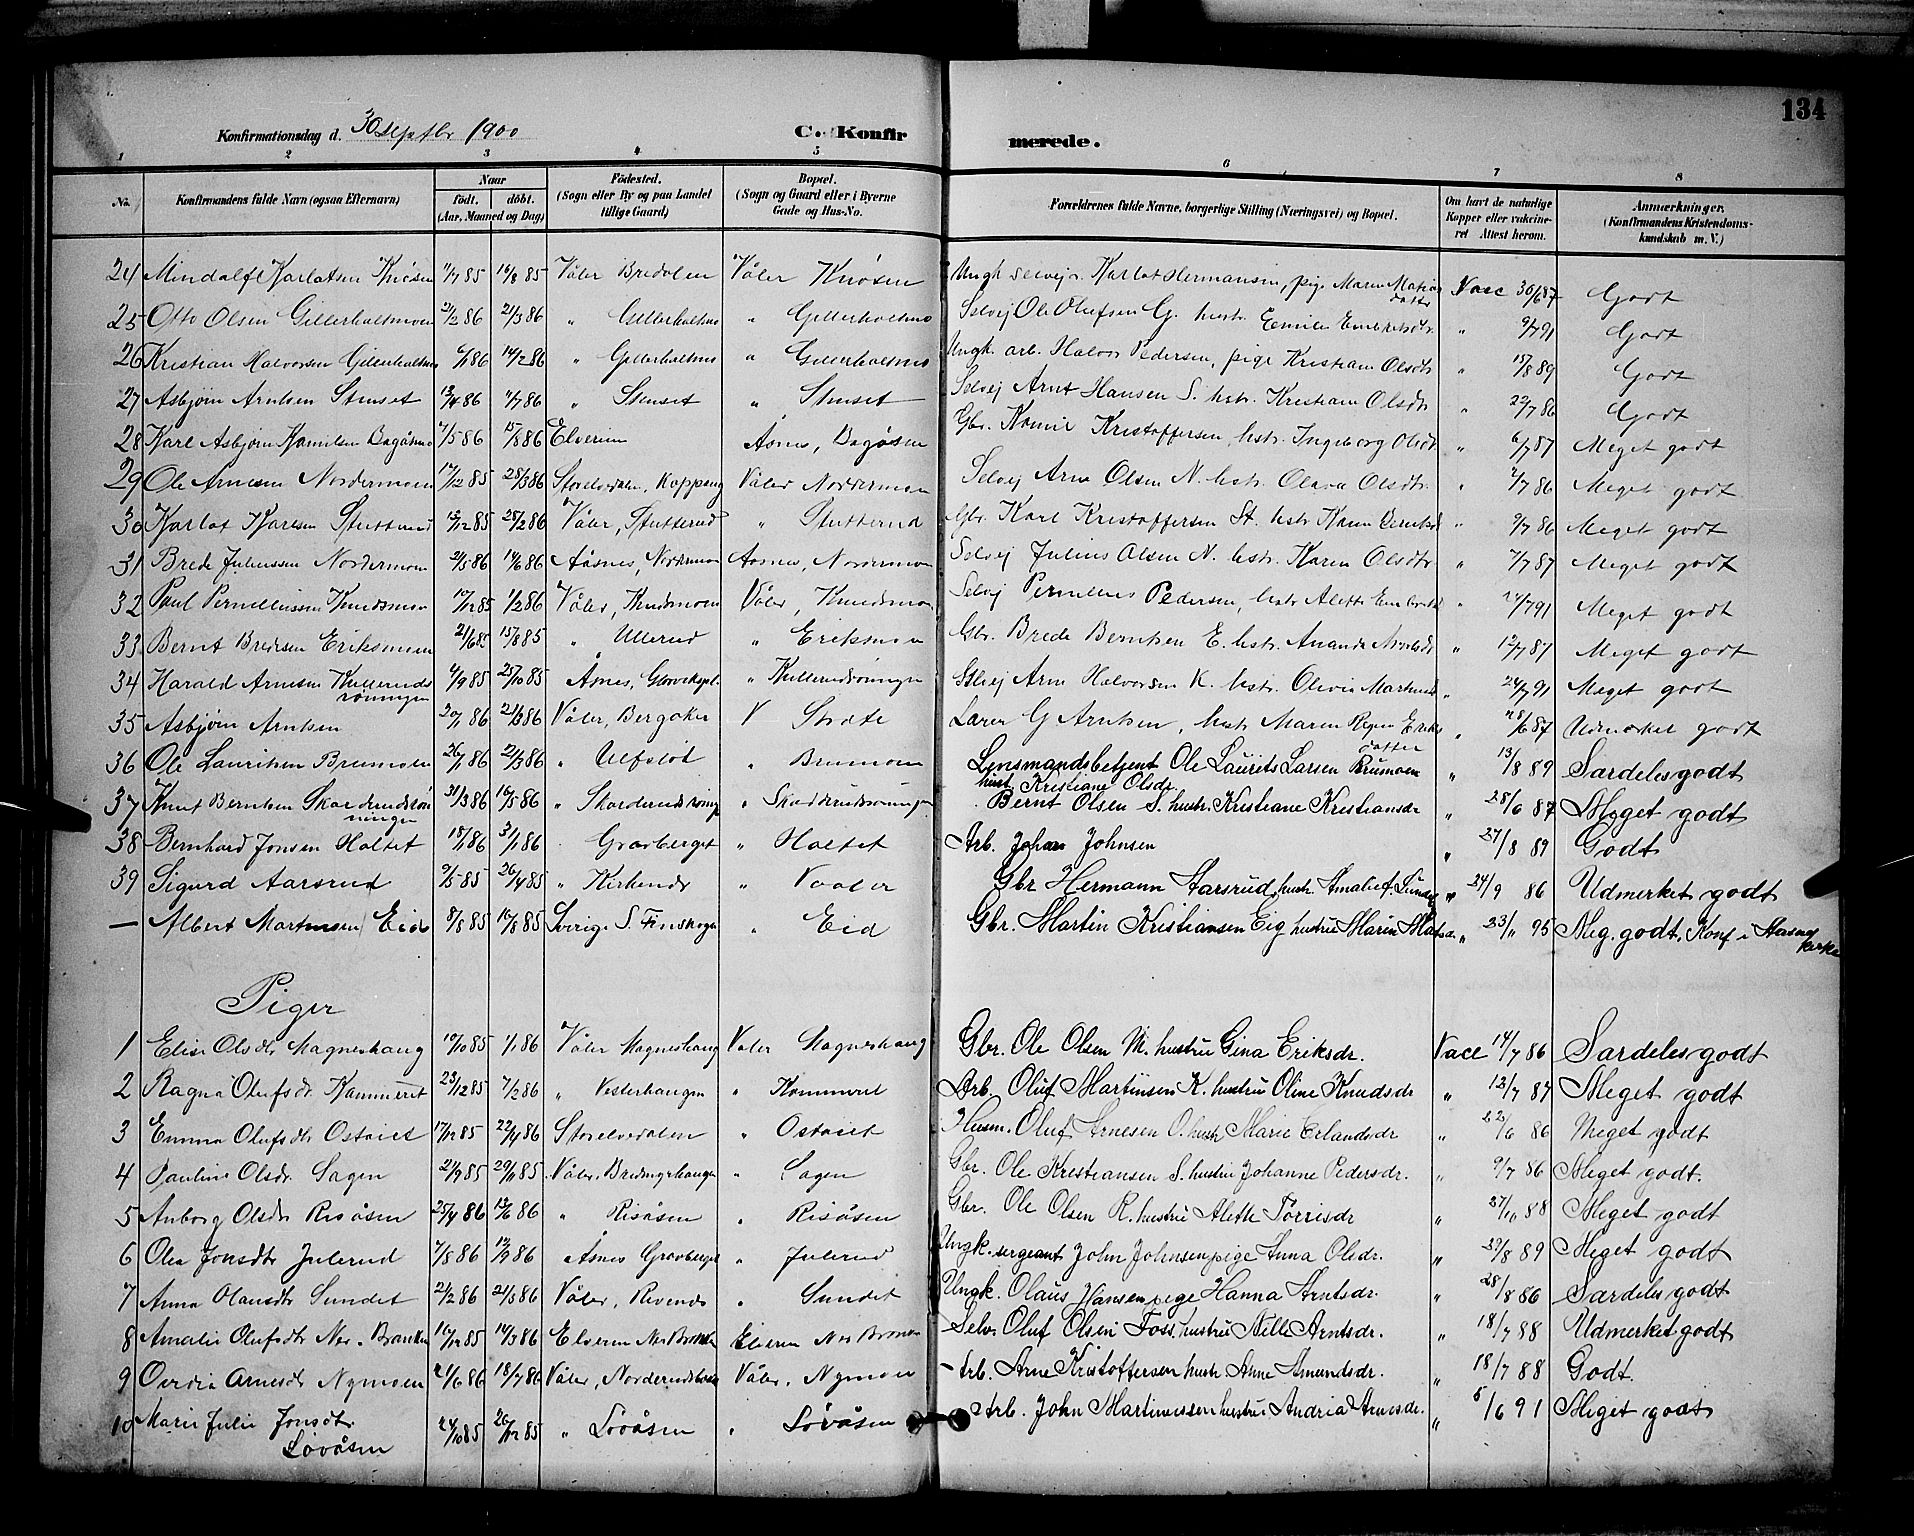 134
Konfirmationsdag d. 30 septbr 1900 C. Konfirmerede.
1 2 3 4 5 6 7 8
No. Konfirmandens fulde Navn (ogsaa Efternavn) Naar født. døbt. (Aar, Maaned og Dag) Fødested. (Sogn eller By og paa Landet tillige Gaard) Bopæl. (Sogn og Gaard eller i Byerne Gade og Hus-No. Forældrenes fulde Navne, borgerlige Stilling (Næringsvei) og Bopæl. Om havt de naturlige Kopper eller vaccineret Attest herom. Anmærkninger. (Konfirmandens Kristendomskundskab m. V.)
24 Mindalf Karlotsen Knøsen 11/7 85 16/8 85 Våler Bredalen Våler Knøsen Ungk selvej. Karlot Hermansen, pige Maren Matiasdatter Vacc 30/6 87 Godt
25 Otto Olsen Gillerholtmoen 2/2 86 21/3 86 " Gillerholtmo " Gillerholtmo Selvej Ole Olufsen G. hustr. Emilie " 9/7 91 Godt
26 Kristian Halvorsen Gillerholtmo 6/1 86 14/2 86 " Gillerholtmo " Gillerholtmo Ungk. arb. Halvor Pedersen, pige Kristiane Olsdtr " 15/8 89 Godt
27 Asbjørn Arntsen Stenset 13/4 86 11/7 86 " Stenset " Stenset Selvej Arnt Hansen S. hstr. Kristiane Olsdtr " 22/7 86 Godt
28 Karl Asbjørn Kamilsen Bagåsen 7/5 86 15/8 86 Elverum Åsnes, Bagåsen Gbr. Kamil Kristoffersen, hstr. Ingeborg Olsdtr " 6/7 87 Meget godt
29 Ole Arnesen Nordermoen 17/12 85 28/3 86 Storelvedalen, Koppang Våler Nordermoen Selvej Arne Olsen N. hstr. Olava Olsdtr. " 2/7 86 Meget godt
30 Karlot Karlsen Stutterud 13/12 85 28/2 86 Våler, Stutterud " Stutterud Gbr. Karl Kristoffersen St. hstr Karen " 9/7 86 Meget godt
31 Brede Juliussen Nordermoen 2/5 86 14/6 86 Åsnes, Nordermoen Åsnes, Nordermoen Selvej Julius Olsen N. hstr. Karen Olsdtr " 7/7 87 Meget godt
32 Paul Pernellussen Knudsmoen 17/12 85 1/2 86 Våler, Knudsmoen Våler, Knudsmoen Selvej Pernelius Pedersen, hstr. Alette " 24/7 91 Meget godt
33 Bernt Bredesen Eriksmoen 21/6 85 15/8 85 " Ullerud " Eriksmoen Gbr. Brede Berntsen E. hstr. Ananda " 12/7 87 Meget godt
34 Harald Arnesen Kullerudsrøningen 4/9 85 25/10 85 Åsnes, " Kullerudsrøningen Selvej Arne Halvorsen K. hstr. Olivia " 24/7 91 Meget godt
35 Asbjørn Arntsen 20/1 86 21/3 86 Våler, Bergaker V Lærer G Arntsen, hstr Maren Eriksdatter " 28/6 87 Udmerket godt
36 Ole Lauritsen Brumoen 26/1 86 21/3 86 " " Brumoen Lensmandsbetjent Ole Laurits Larsen Brumoen hust. Kristiane Olsdr. " 13/8 89 Særdeles godt
37 Knut Berntsen Skarderudsrøningen 31/3 86 16/5 86 " Skarderudsrøning " Skarderudsrøningen Bernt Olsen S. hustr. Kristiane Kristiansdr " 28/6 87 Meget godt
38 Bernhard Jonsen Holtet 18/1 86 31/1 86 Gravberget " Holtet Arb. Johan Johnsen " 27/8 89 Godt
39 Sigurd Aarsrud 9/3 85 26/4 85 " Kirkenes " Vaaler Gbr Hermann Aarsrud, hustr Amalie " 24/9 86 Udmerket godt
— Albert Martinsen Eid 8/8 85 16/8 85 Sverige S. Finskoga " Eid Gbr. Martin Kristiansen Eig hustru Maren " 23/11 95 Meg. godt, Konf i Hasnes kirke
Piger
1 Elise Olsdtr Magneshaug 19/10 85 1/1 86 Våler Magneshaug Våler Magneshaug Gbr. Ole Olsen M. hustru Gina Eriksdr. Vacc 14/7 86 Særdeles godt
2 Ragna Olufsdr Kammeret 23/12 85 7/2 86 " Vesterhaugen " Kammeret Arb. Oluf Martinsen K. hustru Oline Knudsdr " 12/7 87 Meget godt
3 Emma Olufsdtr Ostaiet 17/12 85 22/4 86 Storelvedalen " Ostaiet Husm. Oluf Arnesen O. hustr Marie Erlandsdr " 22/6 86 Meget godt
4 Pauline Olsdr. Sagen 21/9 85 29/11 85 Våler, " Sagen Gbr. Ole Kristiansen S. hustru Johanne Pedersdr. " 9/7 86 Meget godt.
5 Anborg Olsdtr Risåsen 25/4 86 13/6 86 " Risåsen " Risåsen Gbr. Ole Olsen R. hustru Alette Tørrisdr " 27/10 88 Meget godt
6 Olea Jonsdtr Julerud 7/8 86 12/9 86 Åsnes Gravberget " Julerud Ungk. sergeant John Johnsen, pige Anna Olsdr. " 27/8 89 Meget godt
7 Anna Olausdtr Sundet 2/2 86 21/3 86 Våler, Revends " Sundet Ungk. Olaus Hansen pige Hanna Arntsdr. " 28/8 86 Særdeles godt
8 Amalie Olufsdtr Nes-Branken 16/12 85 14/3 86 Elverum Elverum Selv. Oluf Olsen Foss, hustru Nille Arntsdr. " 18/7 88 Udmerket godt
9 Arnesdtr Nymoen 2/6 86 18/7 86 Våler, Våler, Nymoen Arb. Arne Kristoffersen hustr. Anne Amundsdr. " 18/7 88 Godt.
10 Marie Julie Jonsdtr Løvåsen 24/10 85 26/12 85 " Løvåsen " Løvåsen Arb. John Martinussen hustru Andrea Arnesdr. " 5/6 91 Meget godt